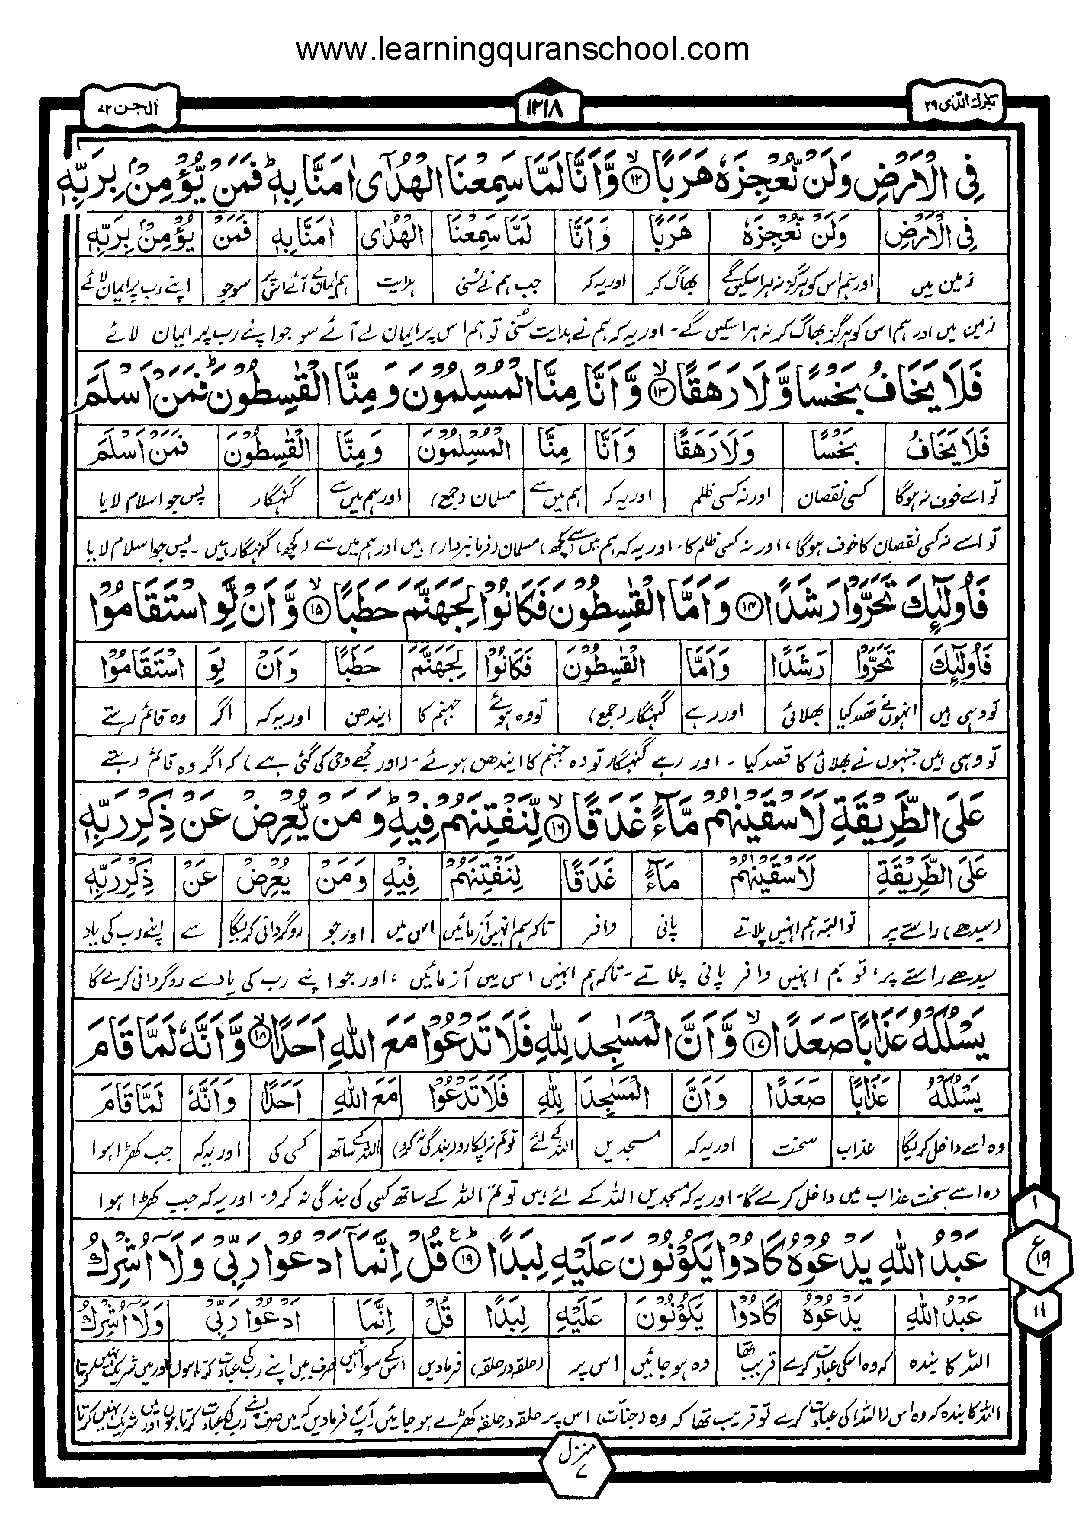 www.learningquranschool.com
تبارك الذی ۲۹
۱۲۱۸
الجن ۷۲
فِی الْاَرْضِ وَلَنْ نُّعْجِزَهٗ هَرَبًا ۱۲ۙ وَّاَنَّا لَمَّا سَمِعْنَا الْهُدٰۤى اٰمَنَّا بِهٖ ؕ فَمَنْ یُّؤْمِنْۢ بِرَبِّهٖ
فِی الْاَرْضِ وَلَنْ نُّعْجِزَهٗ هَرَبًا وَاَنَّا لَمَّا سَمِعْنَا الْهُدٰۤى اٰمَنَّا بِهٖ فَمَنْ یُّؤْمِنْۢ بِرَبِّهٖ
زمین میں اور ہم اس کو ہرگز نہ ہرا سکیں گے بھاگ کر اور یہ کہ جب ہم نے سنی ہدایت ہم ایمان لے آئے اس پر سو جو اپنے رب پر ایمان لائے
زمین میں اور ہم اس کو ہرگز بھاگ کر نہ ہرا سکیں گے۔ اور یہ کہ ہم نے ہدایت سنی تو ہم اس پر ایمان لے آئے سو جو اپنے رب پر ایمان لائے
فَلَا یَخَافُ بَخْسًا وَّلَا رَهَقًا ۱۳ۙ وَّاَنَّا مِنَّا الْمُسْلِمُوْنَ وَمِنَّا الْقٰسِطُوْنَ ؕ فَمَنْ اَسْلَمَ
فَلَا یَخَافُ بَخْسًا وَلَا رَهَقًا وَاَنَّا مِنَّا الْمُسْلِمُوْنَ وَمِنَّا الْقٰسِطُوْنَ فَمَنْ اَسْلَمَ
تو اسے خوف نہ ہوگا کسی نقصان اور نہ کسی ظلم اور یہ کہ ہم میں سے مسلمان (جمع) اور ہم میں سے گنہگار پس جو اسلام لایا
تو اسے نہ کسی نقصان کا خوف ہوگا، اور نہ کسی ظلم کا۔ اور یہ کہ ہم میں سے کچھ مسلمان (فرمانبردار) ہیں اور ہم میں سے (کچھ) گنہگار ہیں۔ پس جو اسلام لایا
فَاُولٰٓئِكَ تَحَرَّوْا رَشَدًا ۱۴ وَاَمَّا الْقٰسِطُوْنَ فَكَانُوْا لِجَهَنَّمَ حَطَبًا ۱۵ۙ وَّاَنْ لَّوِ اسْتَقَامُوْا
فَاُولٰٓئِكَ تَحَرَّوْا رَشَدًا وَاَمَّا الْقٰسِطُوْنَ فَكَانُوْا لِجَهَنَّمَ حَطَبًا وَاَنْ لَوِ اسْتَقَامُوْا
تو وہی ہیں انہوں نے قصد کیا بھلائی اور رہے گنہگار (جمع) تو وہ ہوئے جہنم کا ایندھن اور یہ کہ اگر وہ قائم رہتے
تو وہی ہیں جنہوں نے بھلائی کا قصد کیا۔ اور رہے گنہگار تو وہ جہنم کا ایندھن ہوئے۔ (اور مجھے وحی کی گئی ہے) کہ اگر وہ قائم رہتے
عَلَى الطَّرِیْقَةِ لَاَسْقَیْنٰهُمْ مَّآءً غَدَقًا ۱۶ۙ لِّنَفْتِنَهُمْ فِیْهِ ؕ وَمَنْ یُّعْرِضْ عَنْ ذِكْرِ رَبِّهٖ
عَلَى الطَّرِیْقَةِ لَاَسْقَیْنٰهُمْ مَآءً غَدَقًا لِنَفْتِنَهُمْ فِیْهِ وَمَنْ یُّعْرِضْ عَنْ ذِكْرِ رَبِّهٖ
(سیدھے) راستے پر تو البتہ ہم انہیں پلاتے پانی وافر تاکہ ہم انہیں آزمائیں اس میں اور جو روگردانی کریگا سے اپنے رب کی یاد
سیدھے راستے پر، تو ہم انہیں وافر پانی پلاتے۔ تاکہ ہم انہیں اس میں آزمائیں، اور جو اپنے رب کی یاد سے روگردانی کرے گا
یَسْلُكْهُ عَذَابًا صَعَدًا ۱۷ۙ وَّاَنَّ الْمَسٰجِدَ لِلّٰهِ فَلَا تَدْعُوْا مَعَ اللّٰهِ اَحَدًا ۱۸ۙ وَّاَنَّهٗ لَمَّا قَامَ
یَسْلُكْهُ عَذَابًا صَعَدًا وَاَنَّ الْمَسٰجِدَ لِلّٰهِ فَلَا تَدْعُوْا مَعَ اللّٰهِ اَحَدًا وَاَنَّهٗ لَمَّا قَامَ
وہ اسے داخل کریگا عذاب سخت اور یہ کہ مسجدیں اللہ کے لئے تو تم نہ پکارو (بندگی نہ کرو) اللہ کے ساتھ کسی کی اور یہ کہ جب کھڑا ہوا
وہ اسے سخت عذاب میں داخل کرے گا۔ اور یہ کہ مسجدیں اللہ کے لئے ہیں تو تم اللہ کے ساتھ کسی کی بندگی نہ کرو۔ اور یہ کہ جب کھڑا ہوا
عَبْدُ اللّٰهِ یَدْعُوْهُ كَادُوْا یَكُوْنُوْنَ عَلَیْهِ لِبَدًا ۱۹ؕ قُلْ اِنَّمَاۤ اَدْعُوْا رَبِّیْ وَلَاۤ اُشْرِكُ
عَبْدُ اللّٰهِ یَدْعُوْهُ كَادُوْا یَكُوْنُوْنَ عَلَیْهِ لِبَدًا قُلْ اِنَّمَا اَدْعُوْا رَبِّیْ وَلَاۤ اُشْرِكُ
اللہ کا بندہ کہ وہ اسکی عبادت کرے قریب تھا وہ ہو جائیں اس پر (حلقہ در حلقہ) فرمادیں اسکے سوا نہیں صرف میں اپنے رب کی عبادت کرتا ہوں اور میں شریک نہیں کرتا
اللہ کا بندہ کہ وہ اس (اللہ) کی عبادت کرے تو قریب تھا کہ وہ (جنات) اس پر حلقہ در حلقہ کھڑے ہو جائیں آپ فرمادیں کہ میں صرف اپنے رب کی عبادت کرتا ہوں اور میں شریک نہیں کرتا
۱
ع
۱۹
۱۱
منزل ۷